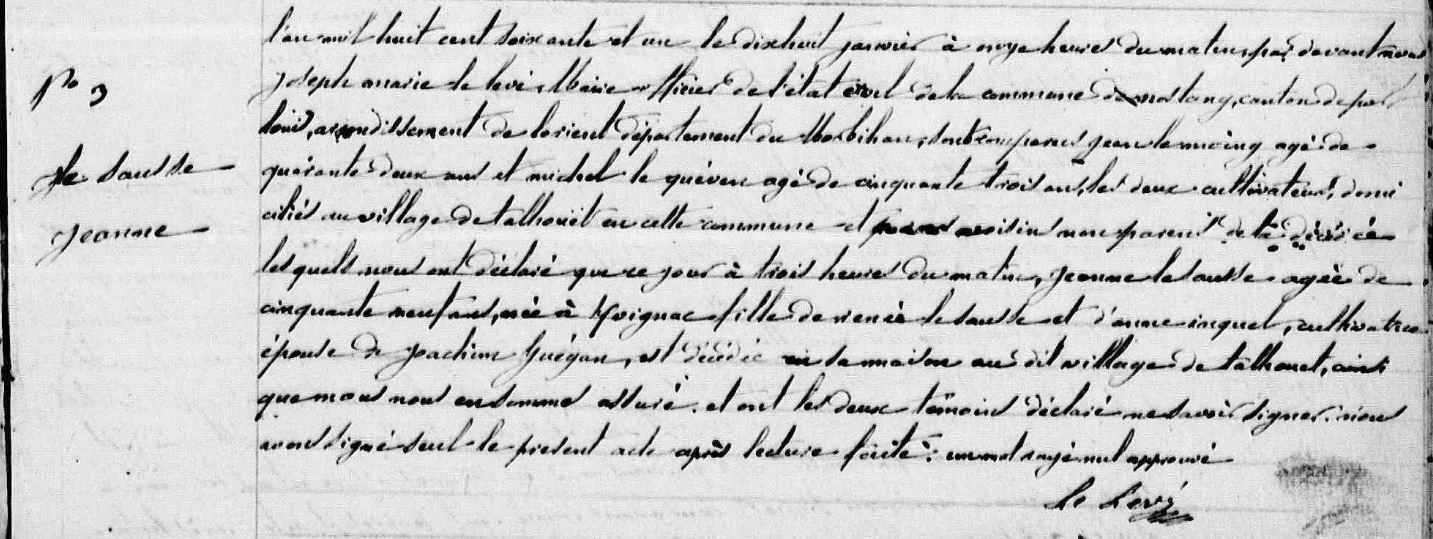 N° 3
Le Sausse
Jeanne
l'an mil huit cent soixante et un le dixhuit janvier à onze heures du matin, par devant nous
Joseph marie le levé, Maire officier de l'état civil de la commune de nostang, canton de por
louis, arrondissement de lorient département du Morbihan, sont comparus jean le agé de
quarante deux ans et michel le quéven agé de cinquante trois ans, les deux cultivateurs, domi
ciliés au village de talhouet en cette commune et voisins non parents de la décédée
lesquels nous ont déclaré que ce jour à trois heures du matin, Jeanne le sausse agée de
cinquante neuf ans, née à fille de renée le sausse et d'anne, cultivatrice
épouse de Joachim Guégan, est décédée en sa maison au dit village de talhouet, ainsi
que nous nous en sommes assuré. et ont les deux témoins déclaré ne savoir signer. nous
avons signé seul le présent acte après lecture faite. un mot rayé nul approuvé
Le Levé